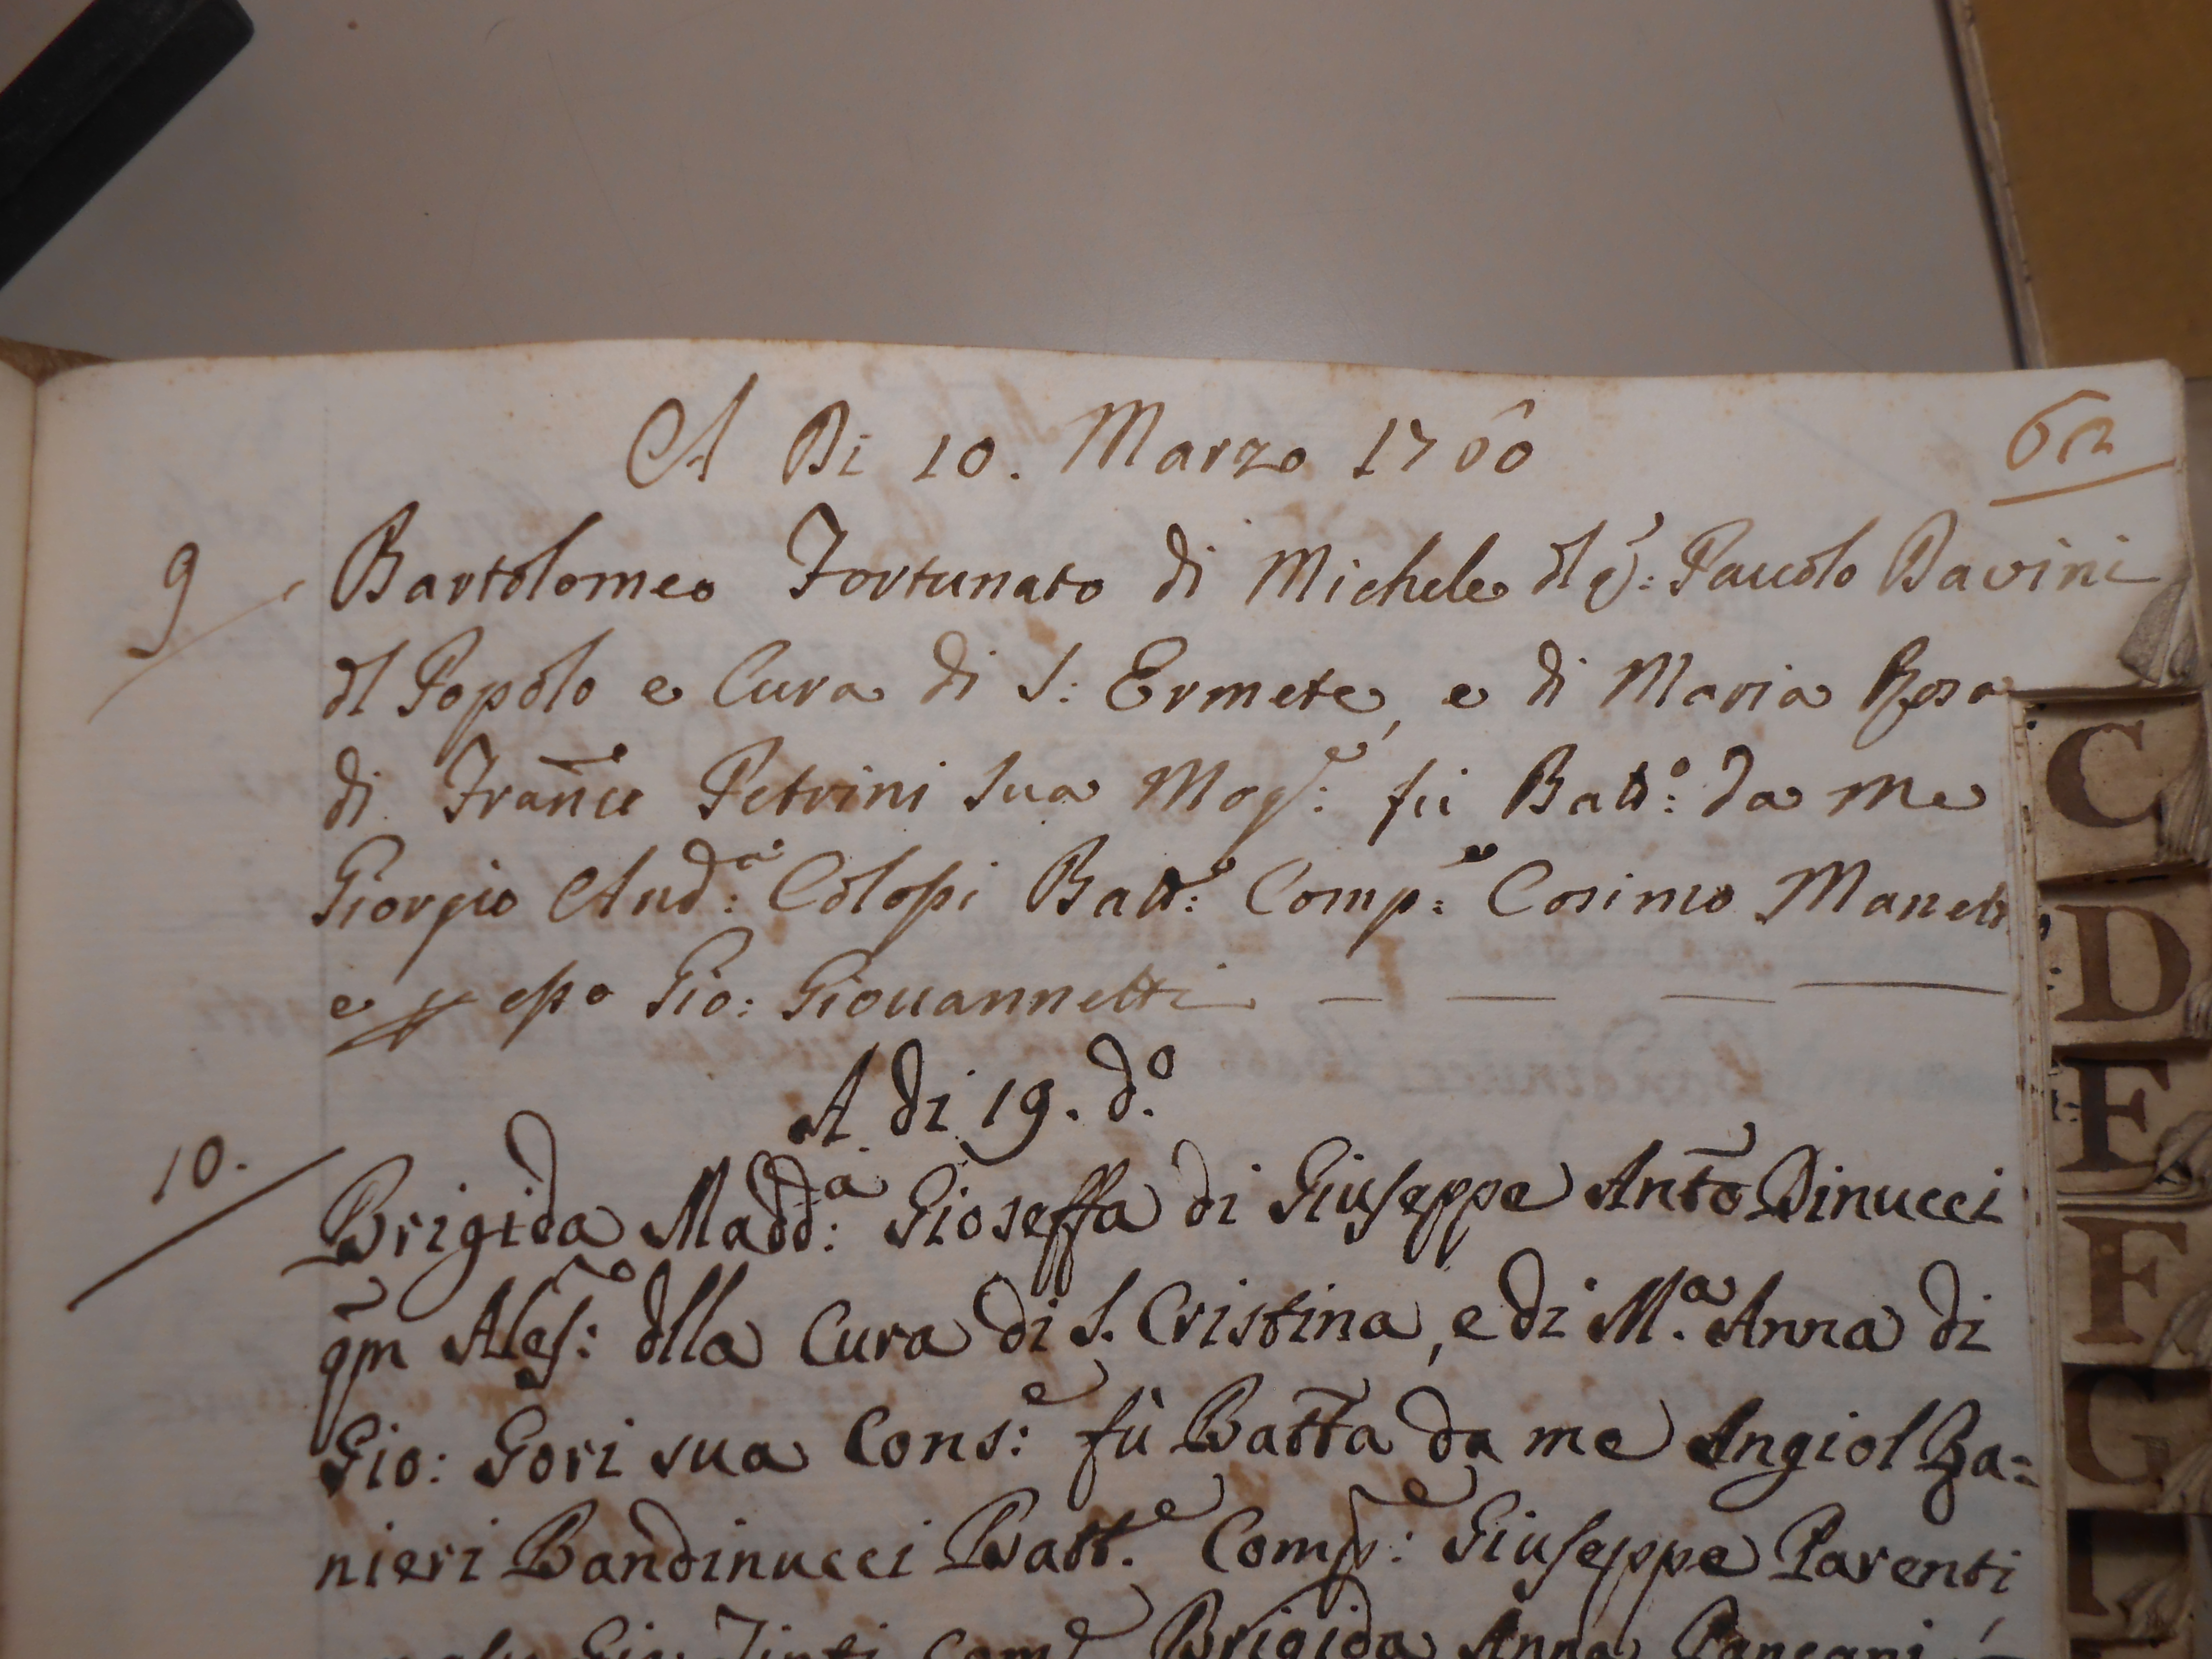 A Di 10. Marzo 1760
62
9 Bartolomeo Fortunato di Michele dl q: Pauolo Bavini
dl Popolo e Cura di S: Ermete, e di Maria Rosa
di Franco Petrini sua Mog:e fu Batt:o da me
Giorgio And:a Colopi Batt:e Comp:e Cosimo Manett
e p esso Gio: Giouannetti
A di 19. d.o
10. Brigida Madd:a Gioseffa di Giuseppe Anto Dinucci
qm Ales:o dlla Cura di S. Cristina, e di M.a Anna di
Gio: Gori sua Cons:e fù Batta da me Angiol Ra=
nieri Bandinucci Batt.e Comp:e Giuseppe Parenti
Gio: Tinti Com:e Brigida Anna Pancani
C
D
E
F
G
I